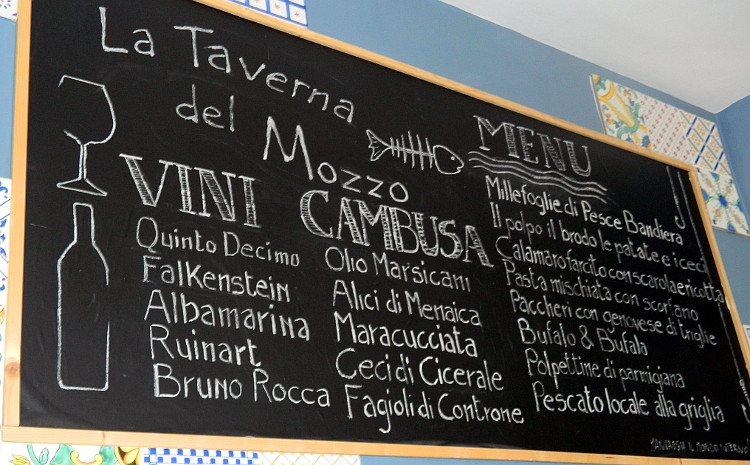 La Taverna
del Mozzo
VINI
Quinto Decimo
Falkenstein
Albamarina
Ruinart
Bruno Rocca
CAMBUSA
Olio Marsicani
Alici di Menaica
Maracucciata
Ceci di Cicerale
Fagioli di Controne
MENU
Millefoglie di Pesce Bandiera
Il polpo il brodo le patate e i ceci
Calamaro farcito con scarola e ricotta
Pasta mischiata con scorfano
Paccheri con genovese di triglie
Bufalo & Bufala
Polpettine di parmigiana
Pescato locale alla griglia